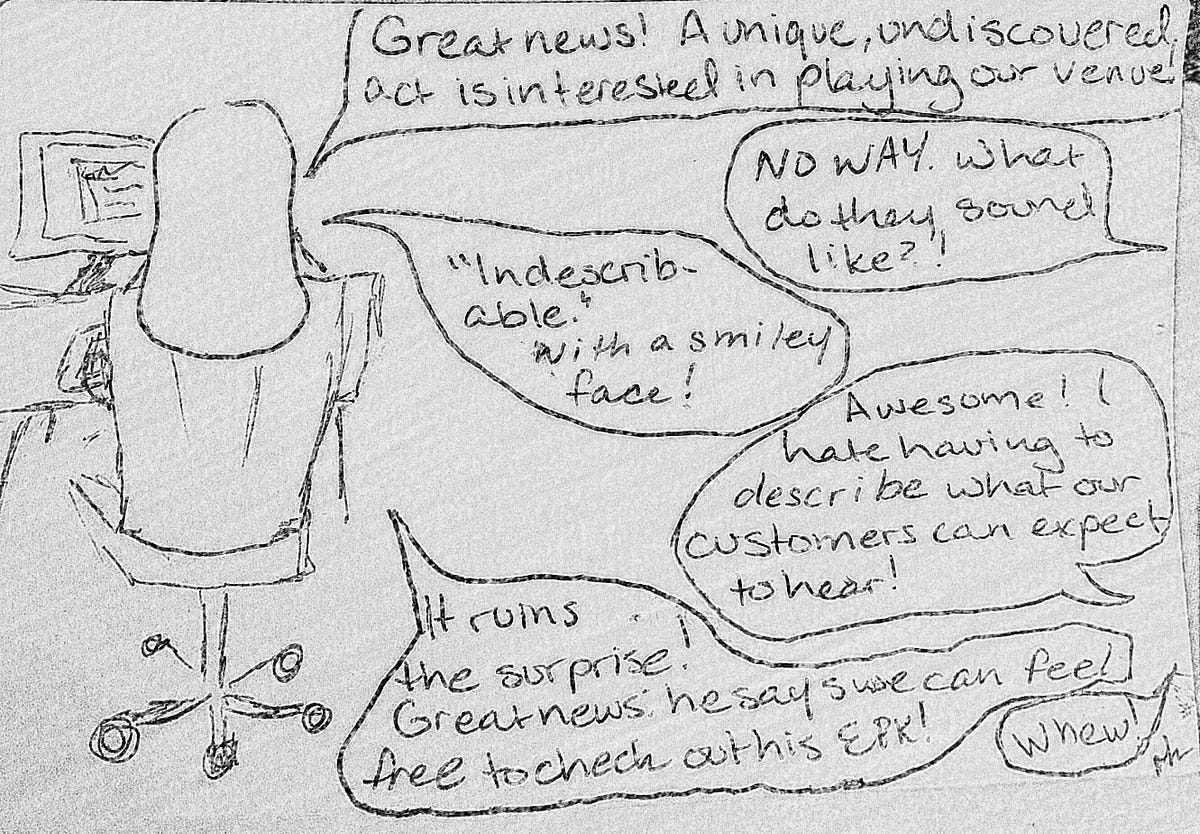 Great news! A unique, undiscovered,
act is interested in playing our venue!
NO WAY. What
do they sound
like?!
"Indescrib-
able."
With a smiley
face!
Awesome! I
hate having to
describe what our
customers can expect
to hear!
It ruins
the surprise!
Great news: he says we can feel
free to check out his EPK!
Whew!